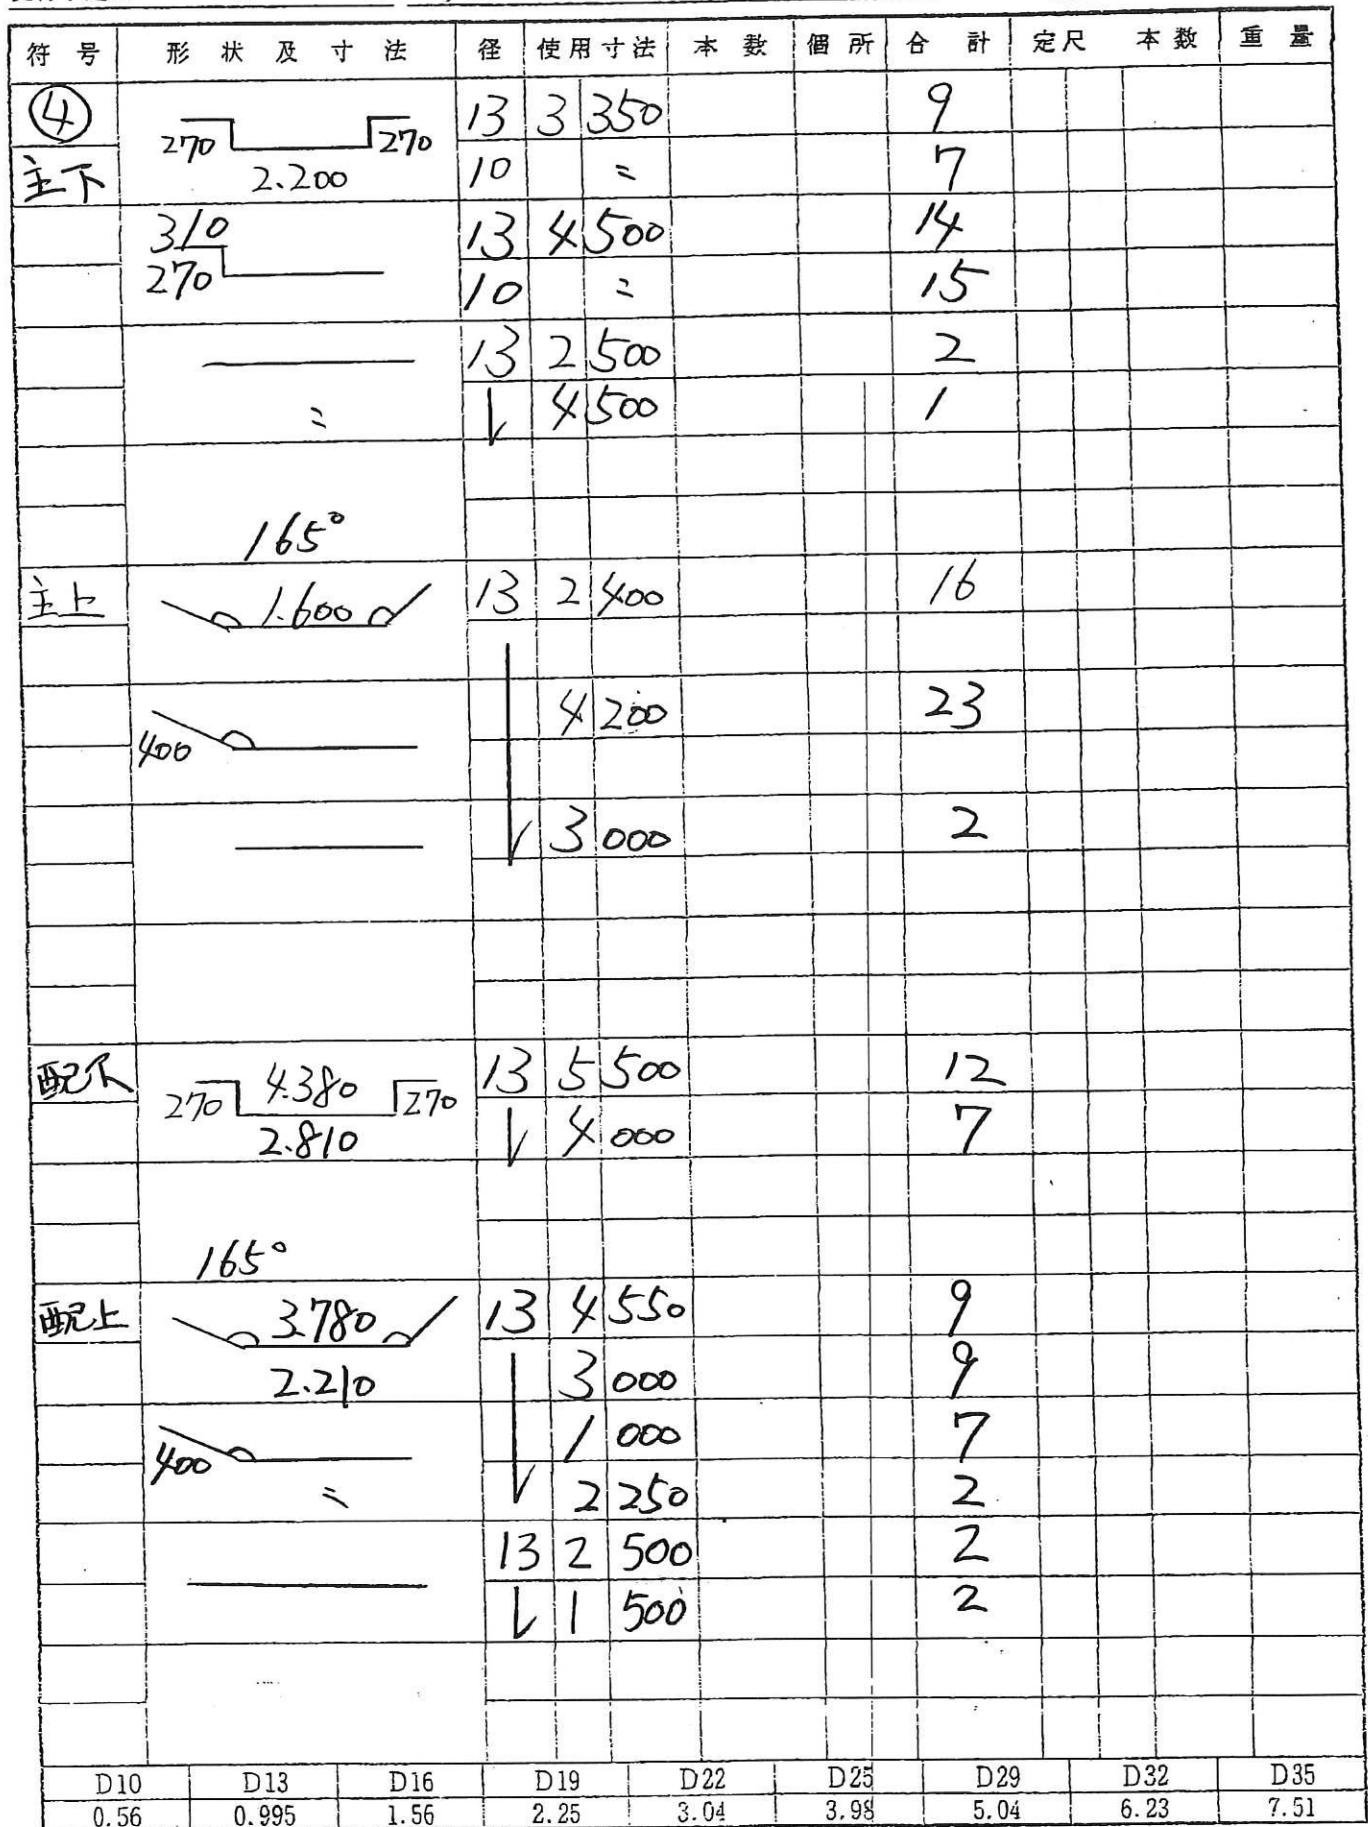 符号 形状及寸法 径 使用寸法 本数 個所 合計 定尺 本数 重量
④ 270 270 13 3 350 9
主下 2.200 10 〃 7
310 13 4 500 14
270 10 〃 15
13 2 500 2
〃 ↓ 4 500 1
165°
主上 1.600 13 2 400 16
400 4 200 23
↓ 3 000 2
配下 270 4.380 270 13 5 500 12
2.810 ↓ 4 000 7
165°
配上 3.780 13 4 550 9
2.210 3 000 9
400 1 000 7
〃 ↓ 2 250 2
13 2 500 2
↓ 1 500 2
D10 D13 D16 D19 D22 D25 D29 D32 D35
0.56 0.995 1.56 2.25 3.04 3.98 5.04 6.23 7.51